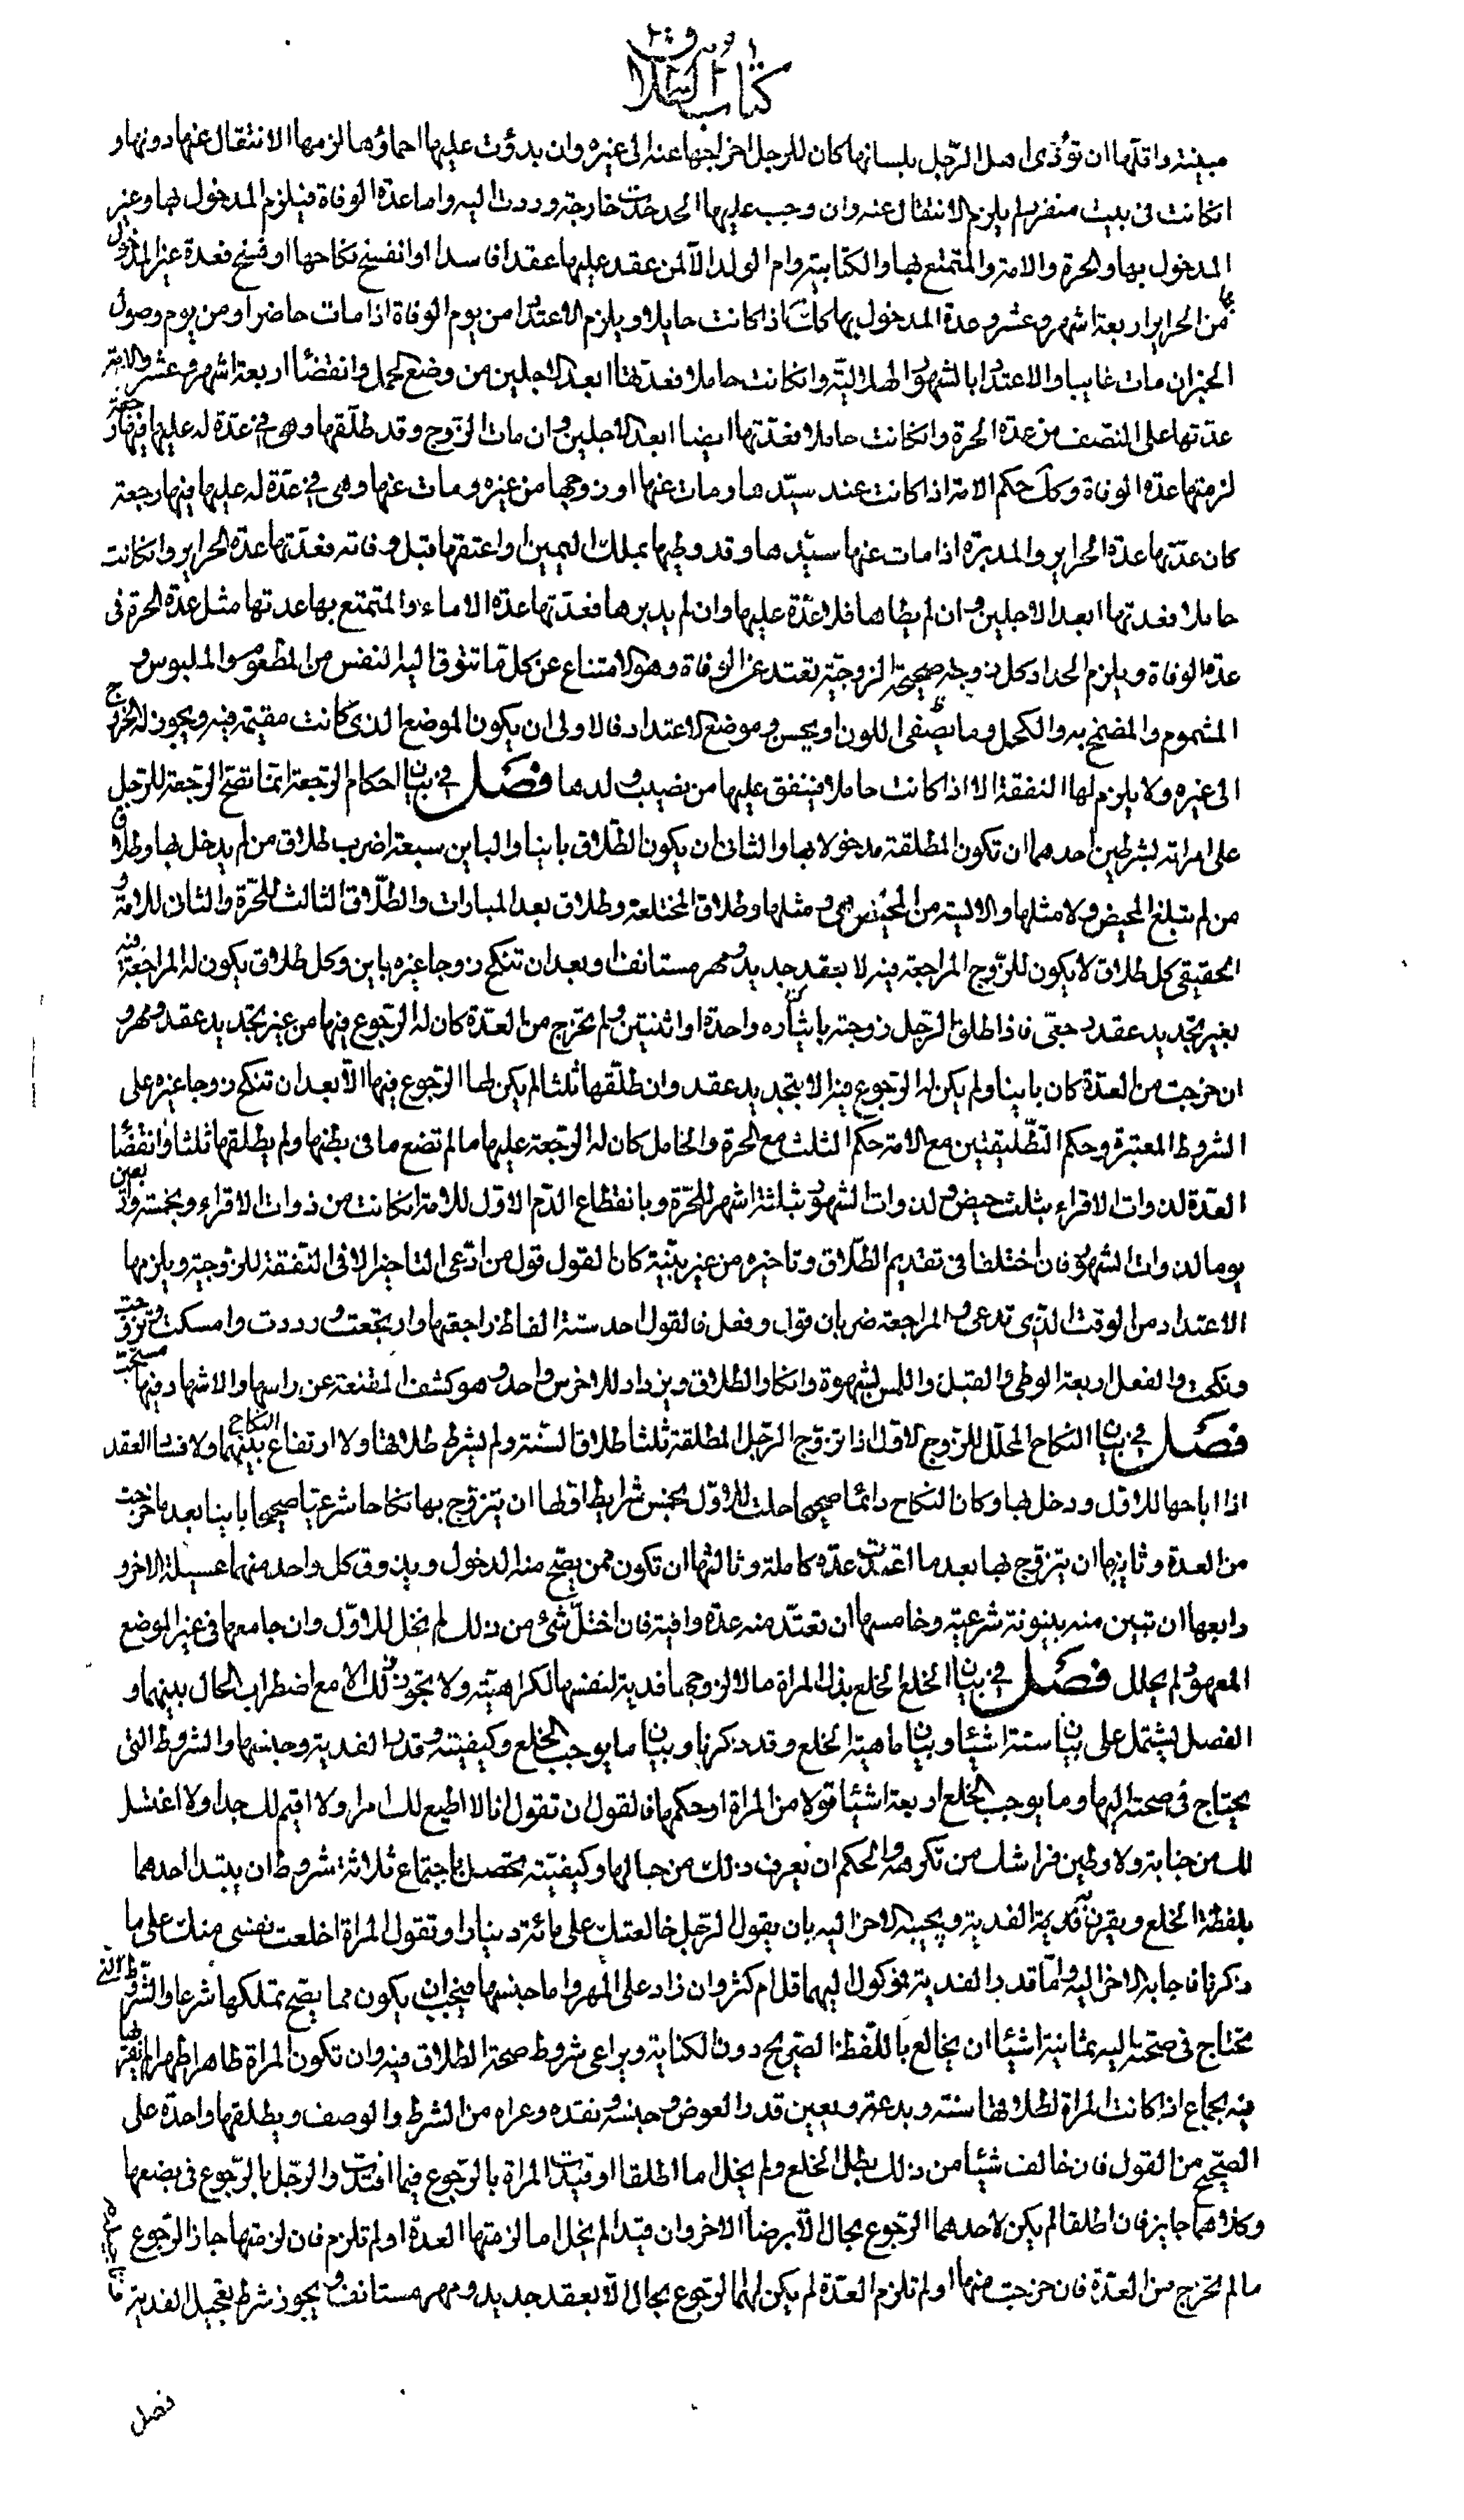 كتاب الطلاق
مبينة واقلها ان تؤذى اهل الرّجل بلسانها كان للرجل اخراجها عنه الى غيره وان بدؤت عليها احماؤها لزمها الانتقال عنها دونها و
انكانت فى بيت منفرد لم يلزم الانتقال عنه وان وجب عليها الحد خرجت خارجة وردت اليه واما عدة الوفاة فيلزم المدخول بها وغير
المدخول بها والحرة والامة والمتمتع بها والكتابية وام الولد الا لمن عقد عليها عقدا فاسدا او انفسخ نكاحها او فسخ فعدة غير المدخول بها
من الحراير اربعة اشهر وعشر وعدة المدخول بها كذلك اذا كانت حايلا ويلزم الاعتداد من يوم الوفاة اذا مات حاضرا ومن يوم وصول
الخبر ان مات غايبا والاعتداد بالشهور الهلالية وانكانت حاملا فعدتها ابعد الاجلين من وضع الحمل وانقضاء اربعة اشهر وعشر والامة
عدتها على النصف من عدة الحرة وانكانت حاملا فعدّتها ايضا ابعد الاجلين وان مات الزوج وقد طلّقها وهى فى عدّة له عليها فيها رجعة
لزمتها عدة الوفاة وكذلك حكم الامة اذا كانت عند سيّدها ومات عنها او زوجها من غيره ومات عنها وهى فى عدّة له عليها فيها رجعة
كان عدّتها عدة الحراير والمدبرة اذا مات عنها سيّدها وقد وطيها بملك اليمين او اعتقها قبل وفاته فعدّتها عدة الحراير وانكانت
حاملا فعدتها ابعد الاجلين وان لم يطاها فلا عدّة عليها وان لم يدبرها فعدّتها عدة الاماء والمتمتع بها عدتها مثل عدة الحرة فى
عدة الوفاة ويلزم الحداد كل زوجة صحيحة الزوجيّة تعتد عن الوفاة وهو الامتناع عن كل ما تتوق اليه النفس من المطعوم والملبوس و
المشموم والمضمخ به والكحل وما يصفى اللون او يحسن وموضع الاعتداد فالاولى ان يكون الموضع الذى كانت مقيمة فيه ويجوز له الخروج
الى غيره ولا يلزم لها النفقة الا اذا كانت حاملا فينفق عليها من نصيب ولدها فصل فى بيان احكام الرجعة انما تصح الرجعة للرجل
على امراته بشرطين احدهما ان تكون المطلقة مدخولا بها والثانى ان يكون الطّلاق باينا والباين سبعة اضرب طلاق من لم يدخل بها وطلاق
من لم تبلغ المحيض ولا مثلها والايسة من المحيض هى ومثلها وطلاق المختلعة وطلاق بعد المبارات والطّلاق الثالث للحرّة والثانى للامة و
الحقيقى كل طلاق لا يكون للزّوج المراجعة فيه الا بعقد جديد ومهر مستانف او بعد ان تنكح زوجا غيره باين وكل طلاق يكون له المراجعة فيه
بغير تجديد عقد رجعى فاذا طلق الرّجل زوجته بايثاره واحدة او اثنتين ولم تخرج من العدّة كان له الرجوع فيها من غير تجديد عقد ومهر و
ان خرجت من العدّة كان باينا ولم يكن له الرّجوع فيه الا بتجديد عقد وان طلّقها ثلثا لم يكن لها الرّجوع فيها الا بعد ان تنكح زوجا غيره على
الشروط المعتبرة وحكم التطليقتين مع الامة حكم الثلث مع الحرة والحامل كان له الرّجعة عليها ما لم تضع ما فى بطنها ولم يطلقها ثلثا وانقضاء
العدة لذوات الاقراء بثلث حيض ولذوات الشهور بثلثة اشهر للحرّة وبانقطاع الدّم الاول للامة انكانت من ذوات الاقراء وبخمسة واربعين
يوما لذوات الشهور فان اختلفا فى تقديم الطّلاق وتاخيره من غير بيّنة كان القول قول من ادّعى التاخير الا فى النّفقة للزوجة ويلزمها
الاعتداد من الوقت الّذى تدعى والمراجعة ضربان قول وفعل فالقول احد ستة الفاظ راجعتها وارتجعت ورددت وامسكت وتزوجت
ونكحت والفعل اربعة الوطى والقبلة واللمس بشهوة وانكار الطلاق ويزداد للاخرس واحد وهو كشف المقنعة عن راسها والاشهاد فيها مستحب
فصل فى بيان النكاح المحلّل للزوج الاول اذا تزوّج الرّجل المطلقة ثلثا طلاق السّنّة ولم يشرط طلاقها ولا ارتفاع النكاح بينهما ولا فساد العقد
اذا اباحها للاول ودخل بها وكان النكاح دائما صحيحا حلت للاوّل بخمس شرايط اولها ان يتزوج بها نكاحا شرعيّا صحيحا باينا بعد ما خرجت
من العدة وثانيها ان يتزوّج بها بعد ما اعتدت عدّة كاملة وثالثها ان تكون ممن يصح منه الدخول ويذوق كل واحد منهما عسيلة الاخر و
رابعها ان تبين منه بينونة شرعيّة وخامسها ان تعتدّ منه عدّة وافية فان اختلّ شئ من ذلك لم تحل للاوّل وان جامعها فى غير الموضع
المعهود لم يحلل فصل فى بيان الخلع الخلع بذل المراة مالا لزوجها فدية لنفسها لكراهيته ولا يجوز ذلك الا مع اضطراب الحال بينهما و
الفصل يشتمل على بيان ستة اشياء بيان ماهية الخلع وقد ذكرنا وبيان ما يوجب الخلع وكيفيّته وقدر الفدية وجنسها والشروط التى
يحتاج فى صحته اليها وما يوجب الخلع اربعة اشياء قولا من المراة او حكما فالقول ان تقول انا لا اطيع لك امرا ولا اقيم لك حدا ولا اغتسل
لك من جنابة ولاوطين فراشك من تكرهه والحكم ان تعرف ذلك من حالها وكيفيّته تحصل باجتماع ثلاثة شروط ان يبتدا احدهما
بلفظة الخلع ويقرن به قدر الفدية ويجيبه الاخر اليه بان يقول الرّجل خالعتك على مائة دينار او تقول المراة اخلعت نفسى منك على ما
ذكرنا فاجابه الاخر اليه وامّا قدر الفدية فموكول اليهما قل ام كثر وان زاد على المهر واما جنسها فيجب ان يكون مما يصح تملكها شرعا والشروط التى
تحتاج فى صحته اليه ثمانية اشياء ان يخالع باللّفظ الصّريح دون الكناية ويراعى شروط صحة الطلاق فيه وان تكون المراة طاهرا طهرا لم يقربها
فيه بجماع اذا كانت المراة لطلاقها سنة وبدعة وتعيين قدر العوض وجنسه ونقده وعراه من الشرط والوصف ويطلقها واحدة على
الصّحيح من القول فان خالف شيئا من ذلك بطل الخلع ولم يخل اما اطلقا او قيدت المراة بالرّجوع فيما افتدت والرّجل بالرّجوع فى بضعها
وكلاهما جايز فان اطلقا لم يكن لاحدهما الرّجوع بحال الّا برضا الاخر وان قيدا لم يخل اما لزمتها العدة او لم تلزم فان لزمتها جاز الرّجوع
ما لم تخرج من العدّة فان خرجت منها او لم تلزم العدّة لم يكن لهما الرّجوع بحال الّا بعقد جديد ومهر مستانف ويجوز شرط تعجيل الفدية
فصل